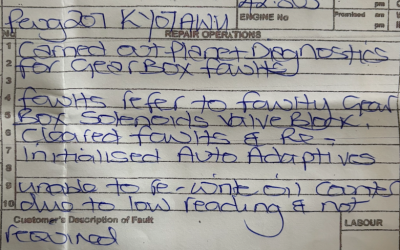 42.203
am
pm
Peug207 KY07AWV
ENGINE No
Promised
am
pm
No
REPAIR OPERATIONS
1 Carried out Planet Diagnostics
2 for GearBox faults
3
4 faults refer to faulty Gear
5 Box Solenoids Valve Block.
6 Cleared faults & RE-
7 Initialised Auto Adaptives
8
9 unable to re-write oil counter
10 due to low reading & not
Customer's Description of Fault
LABOUR
required